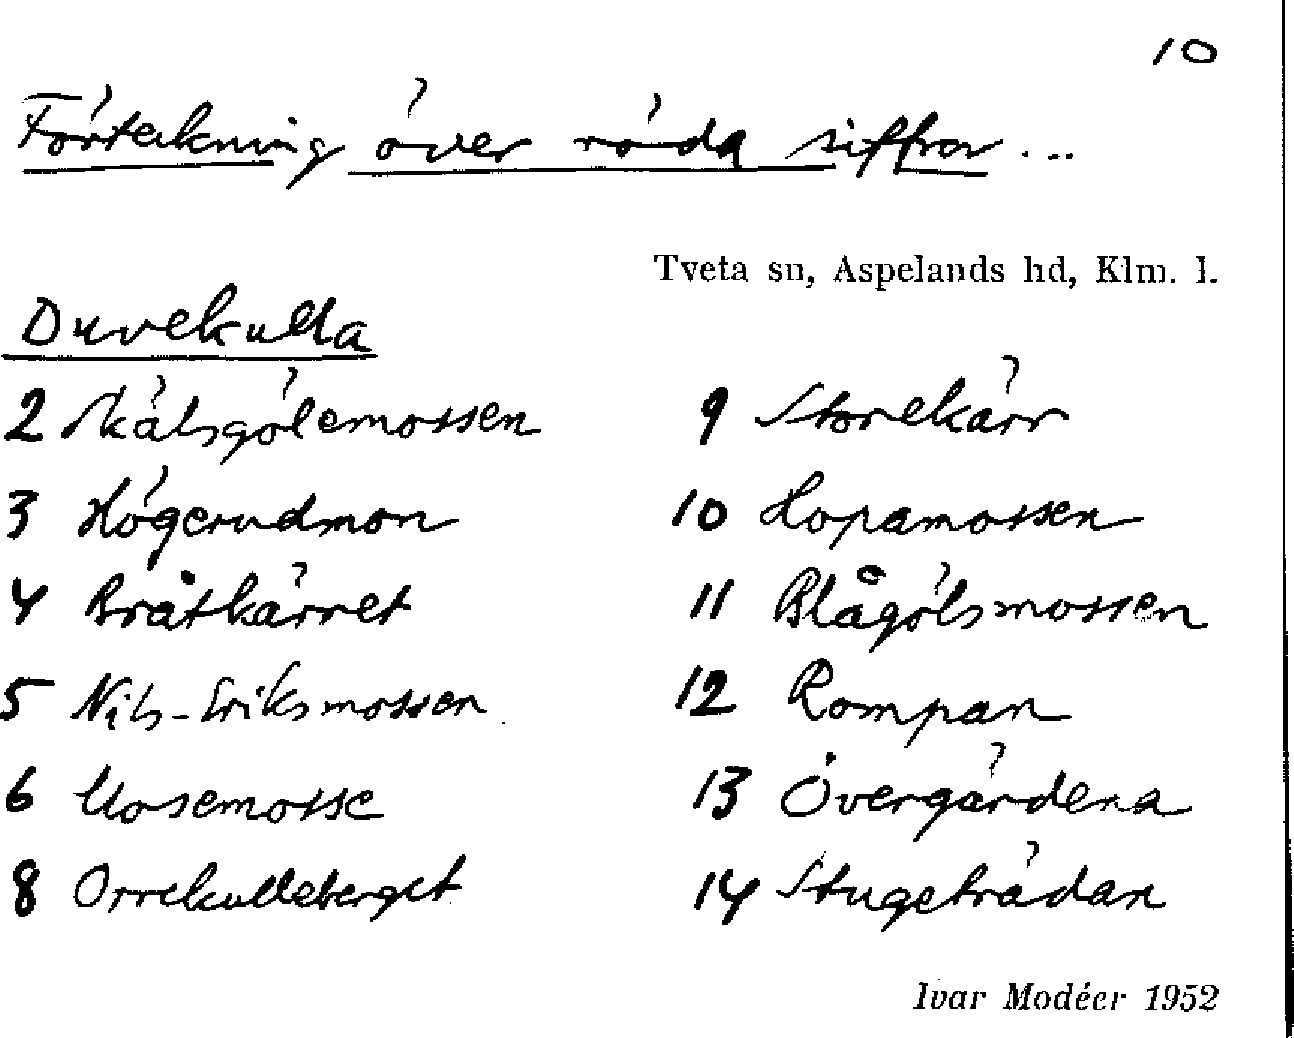 10
Förteckning över röda siffror ...
Tveta sn, Aspelands hd, Klm. l.
Duvekulla
2 Skälsgölemossen
3 Högerudmon
4 Bråtkärret
5 Nils-Eriksmossen
6 Mosemosse
8 Orrekulleberget
9 Storekärr
10 Hopamossen
11 Blågölsmossen
12 Rompan
13 Övergärdena
14 Stugeträdan
Ivar Modéer 1952